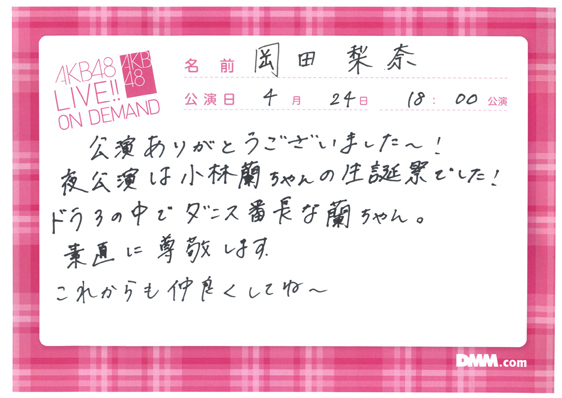 AKB48
LIVE!!
ON DEMAND
AKB
48
名前 岡田 梨奈
公演日 4月 24日 18:00 公演
公演ありがとうございました〜!
夜公演は小林蘭ちゃんの生誕祭でした!
ドラ3の中でダンス番長な蘭ちゃん。
素直に尊敬します
これからも仲良くしてね〜
DMM.com